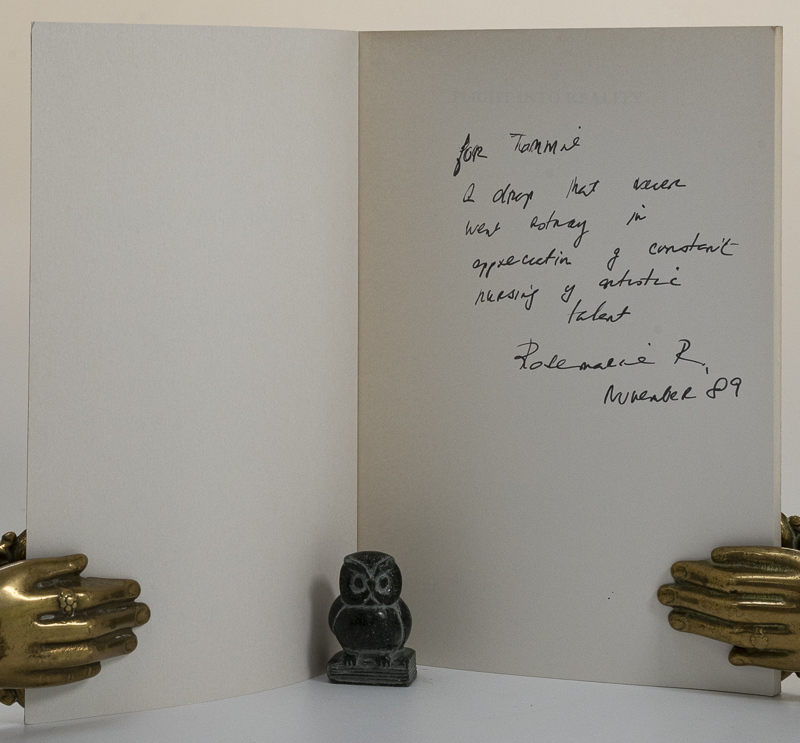 FLIGHT INTO REALITY
for Tommie
a drop that never
went astray in
appreciation of constant
nursing of artistic
talent
Rosemarie R.
November 89